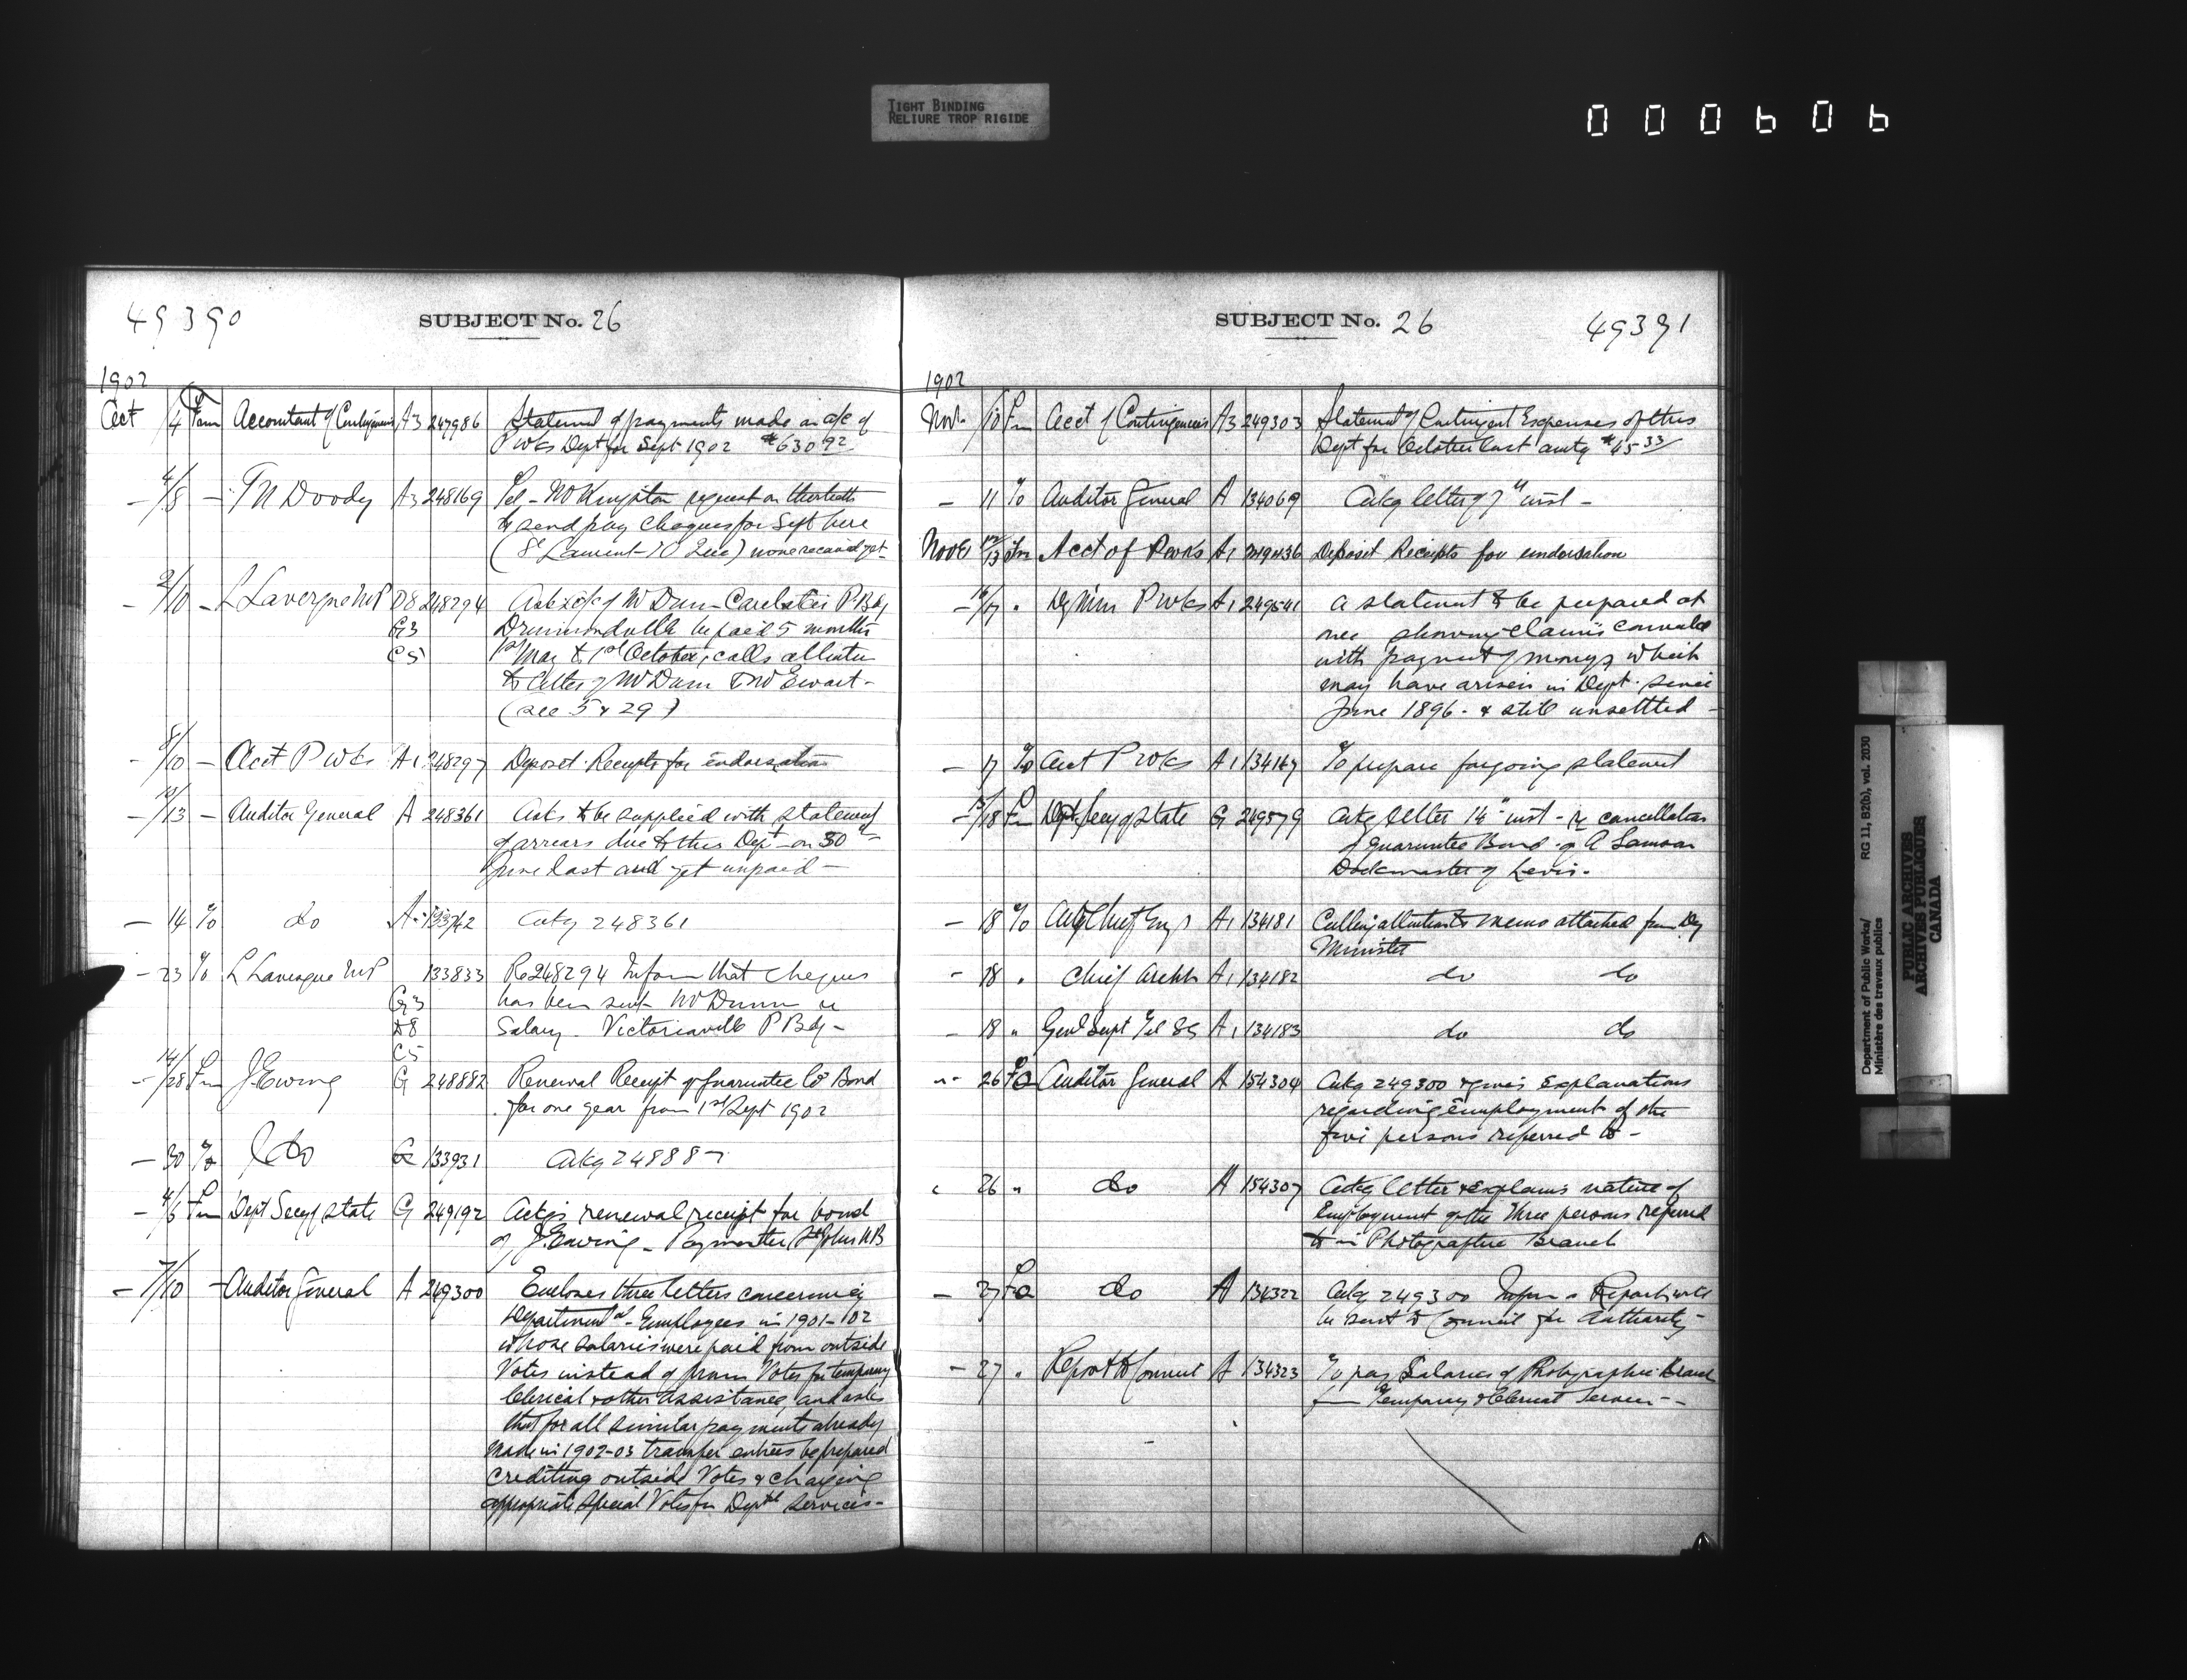 TIGHT BINDING
RELIURE TROP RIGIDE
000606
49390
SUBJECT No. 26
1902
Oct 4 From Accountant of Contingencies A3 247986 Statement of payments made on a/c of
P Wks Dept for Sept 1902 $630.92
— 4/8 — T N Doody A3 248169 Tel – Mr request on thirtieth
to send pay cheques for Sept here
(St Laurent – TO Que) none received yet
— 9/10 — L Lavergne MP D8 248294 Asks of Mr Dunn Caretaker P Bdg
G3 Drummondville be paid 5 months
C5 1st May to 1st October, calls attention
to letter of Mr Dunn to Mr Ewart –
(see 5 & 29)
- 8/10 — Acct P Wks A1 248297 Deposit Receipts for endorsation
— 10/13 — Auditor General A 248361 Asks to be supplied with statement
of arrears due to this Dept – on 30th
June last and yet unpaid –
— 14 To do A 133742 Ackg 248361
— 23 To L Lavergne MP 133833 Re 248294 Inform that cheques
G3 has been sent Mr Dunn re
D8 Salary – Victoriaville P Bdg –
C5
— 14/28 Fm J Ewing G 248882 Renewal Receipt of Guarantee Co Bond
for one year from 1st Sept 1902
— 30 To do G 133931 Ackg 24888
— 4/6 Fm Dept Secy of State G 249192 Ackgs renewal receipt for bond
of J. Ewing – Paymaster, St Johns NB
— 7/10 — Auditor General A 249300 Encloses three letters concerning
Departmental Employees in 1901-02
whose salaries were paid from outside
Votes instead of from Votes for temporary
Clerical & other Assistance, and asks
that for all similar payments already
made in 1902-03 transfer entries be prepared
crediting outside Votes & charging
appropriate special Votes for Deptl services –
SUBJECT No. 26
49391
1902
Nov. 10 Fm Acct of Contingencies A3 249303 Statement of Contingent Expenses of this
Dept for October last amtg $45.33
— 11 To Auditor General A 134069 Ackg letter of 7th inst –
Nov 12/13 Fm Acct of P Wks A1 249436 Deposit Receipts for endorsation
— 17 " Dy Min P Wks A1 249541 A statement to be prepared at
once showing claims connected
with payment of moneys which
may have arisen in Dept. since
June 1896 - & still unsettled –
— 17 To Acct P Wks A1 134167 To prepare forgoing statement
— 15/18 Fm Dept Secy of State G 249579 Ackg letter 14" inst – re cancellation
of Guarantee Bond of A Samson
Dockmaster of Levis.
— 18 To Actg Chief Engr A1 134181 Calling attention to memo attached from Dy
Minister
- 18 " Chief Archt A1 134182 do do
— 18 " Genl Supt Tel SS A1 134183 do do
- 26 To Auditor General A 134304 Ackg 249300 & gives Explanations
regarding employment of the
five persons referred to –
" 26 " do A 134307 Ackg letter & explains nature of
Employment of the three persons referred
to in Photographic Branch
— 27 To do A 134322 Ackg 249300 Inform a Report will
be sent to Council for Authority –
— 27 " Report to Council A 134323 To pay Salaries of Photographic Branch
from Temporary & Clerical Services –
Department of Public Works/ RG 11, B2(b), vol. 2030
Ministère des travaux publics
PUBLIC ARCHIVES
ARCHIVES PUBLIQUES
CANADA